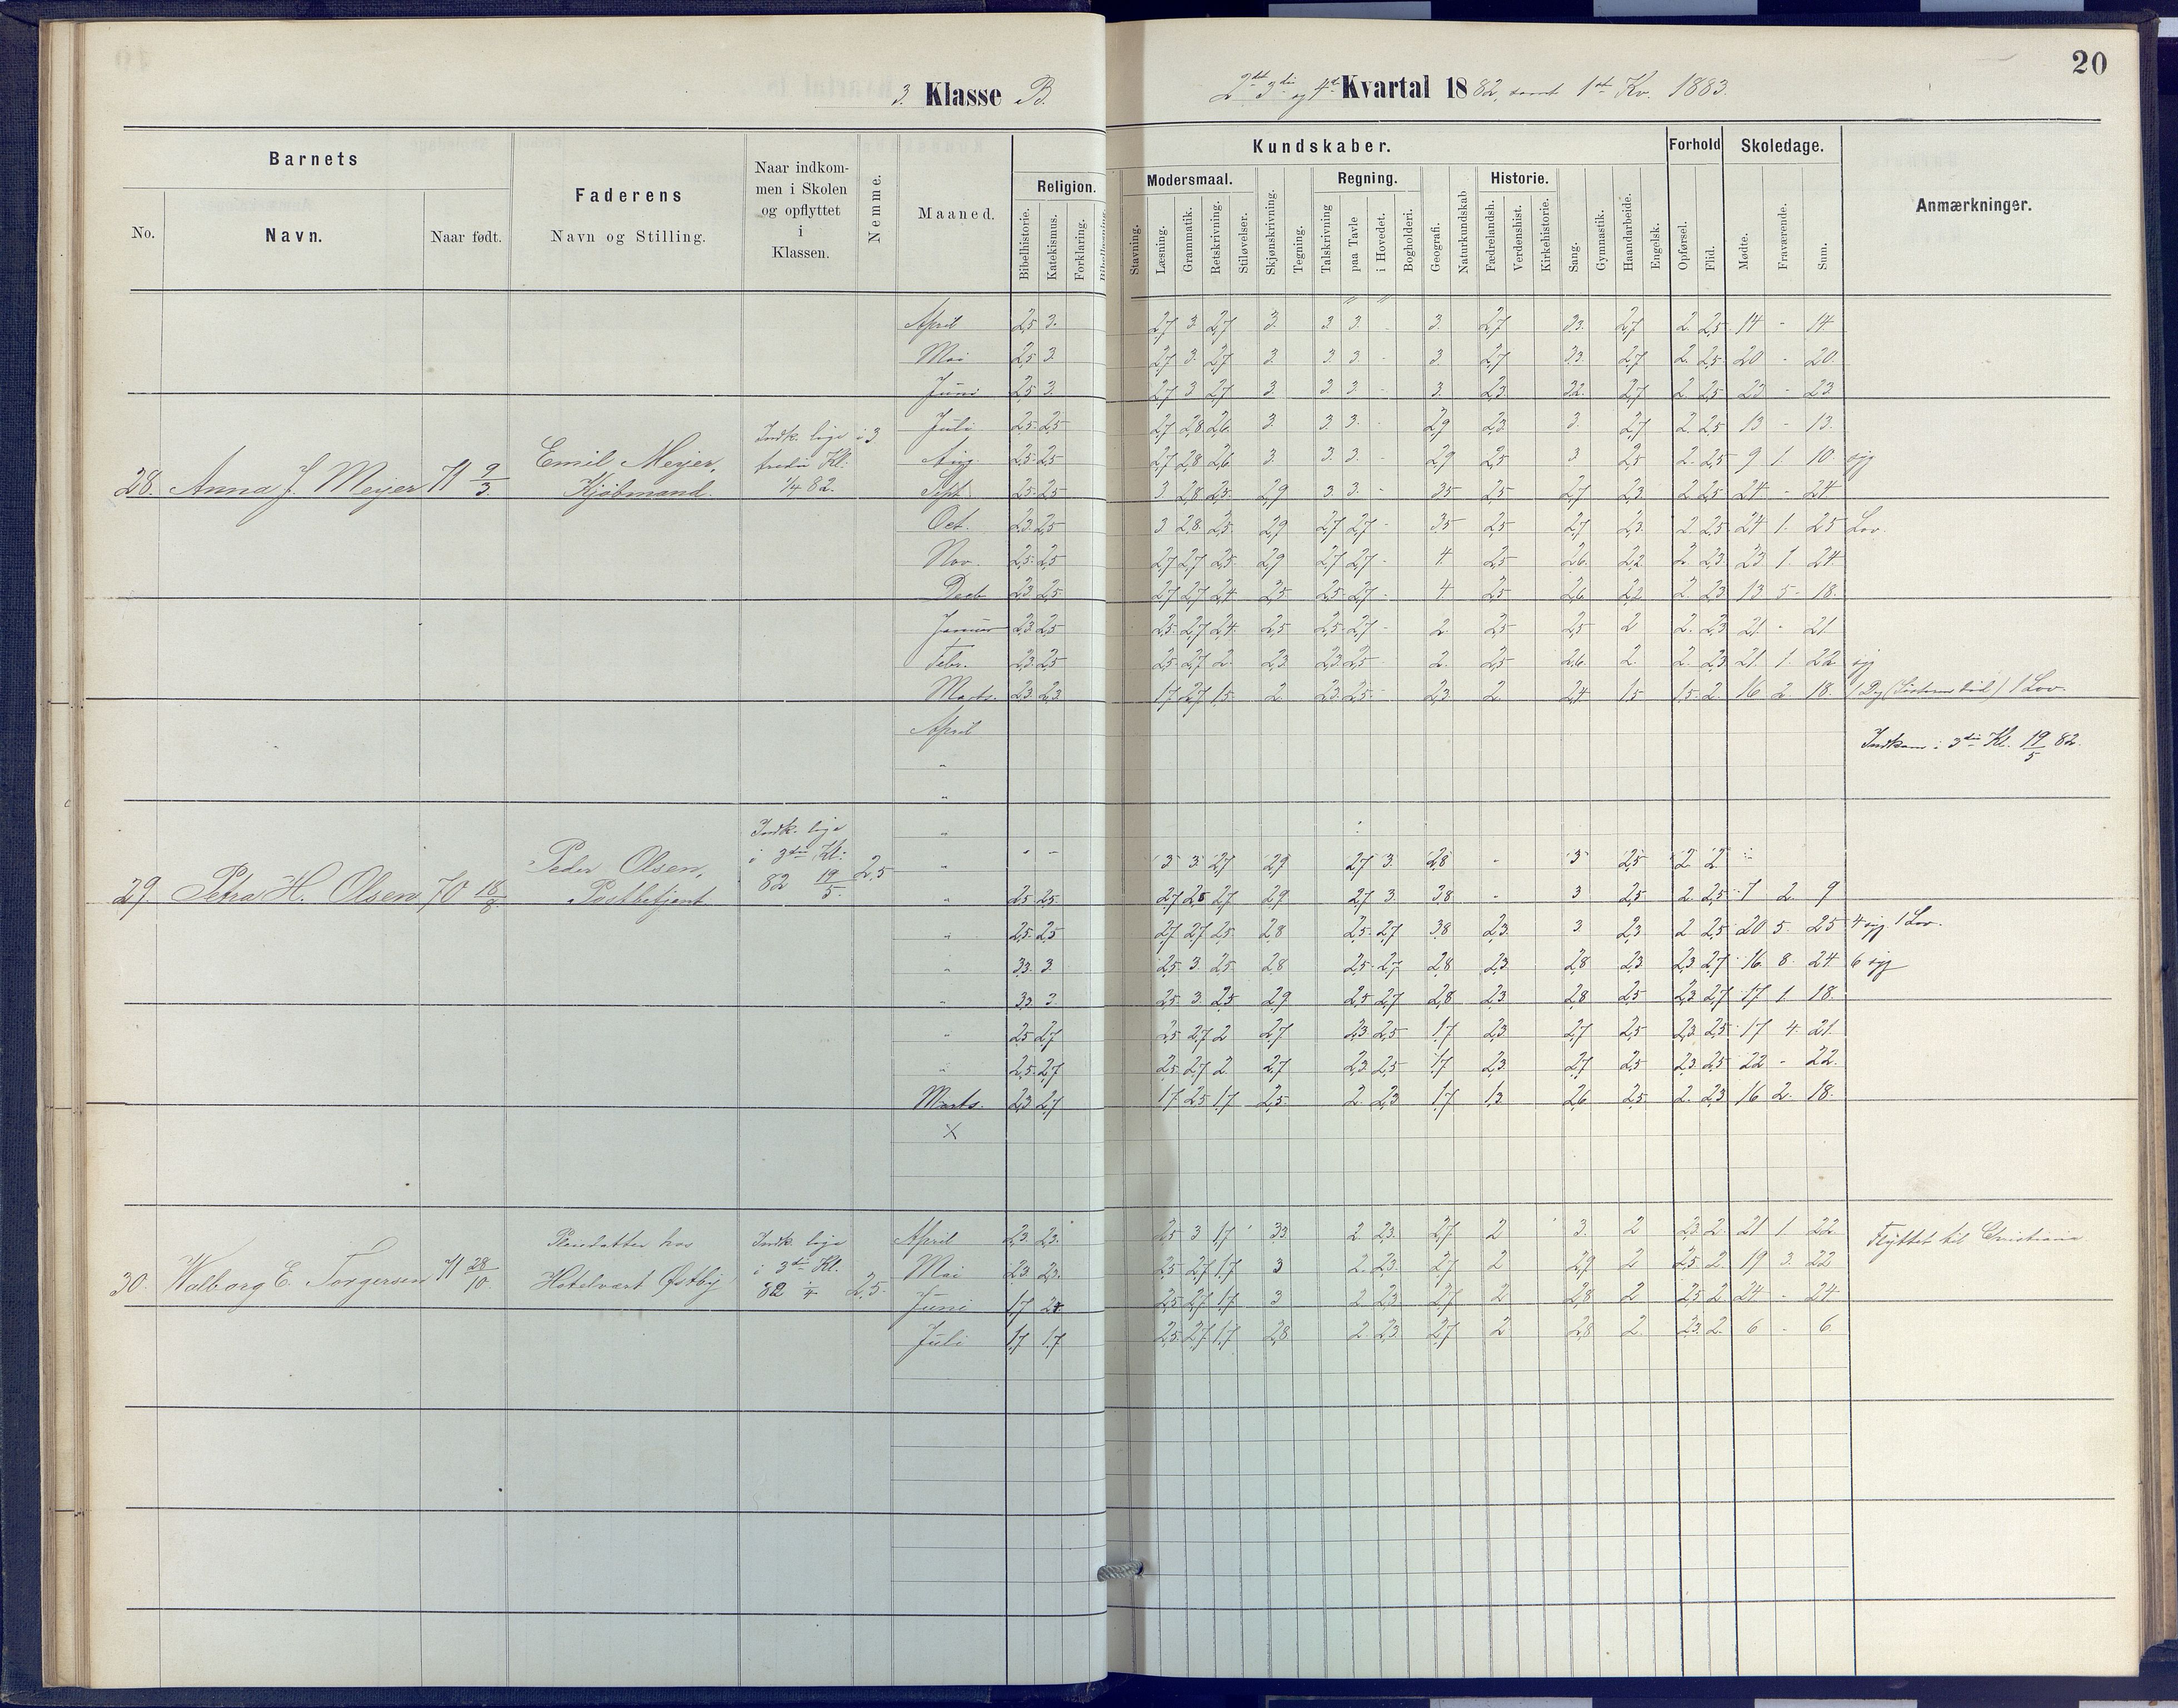 20
3. Klasse B.
2det 3die og 4de Kvartal 1882, samt 1ste Kv. 1883.
Barnets
No.
Navn.
Naar født.
Faderens
Navn og Stilling.
Naar indkom-
men i Skolen
og opflyttet
i
Klassen.
Nemme.
Maaned.
Kundskaber.
Religion.
Bibelhistorie.
Katekismus.
Forklaring.
Bibellæsning.
Modersmaal.
Stavning.
Læsning.
Grammatik.
Retskrivning.
Stiløvelser.
Skjønskrivning.
Tegning.
Regning.
Talskrivning
paa Tavle
i Hovedet.
Bogholderi.
Geografi.
Naturkundskab
Historie.
Fædrelandsh.
Verdenshist.
Kirkehistorie.
Sang.
Gymnastik.
Haandarbeide.
Engelsk.
Forhold
Opførsel.
Flid.
Skoledage.
Mødte.
Fraværende.
Sum.
Anmærkninger.
28. Anna J. Meyer 71 9/3. Emil Meyer, Kjøbmand. Indk. lige i tredie Kl: 1/4 82. 3
April 2,5 3. 2,7 3. 2,7 3. 3. 3. - 3. 2,7 3,3. 2,7 2. 2,5 14 - 14.
Mai 2,5 3. 2,7 3. 2,7 3. 3. 3. - 3. 2,7 3,3. 2,7 2. 2,5 20 - 20.
Juni 2,5 3. 2,7 3 2,7 3. 3. 3. - 3. 2,3. 3,2. 2,7 2 2,5 23 - 23.
Juli 2,5 2,5 2,7 2,8 2,6. 3. 3. 3. - 2,9 2,3. 3. 2,7 2. 2,5 13 - 13.
Aug. 2,5 2,5 2,7 2,8 2,6 3. 3. 3. - 2,9 2,5 3 2,5 2. 2,5 9 1. 10 syg
Sept. 2,5 2,5 3. 2,8 2,5 2,9 3. 3. - 3,5 2,5 2,7 2,3. 2 2,5 24 - 24
Oct. 2,3. 2,5 3 2,8. 2,5 2,9 2,7 2,7 - 3,5 2,5 2,7 2,3. 2. 2,5 24 1. 25 Lov.
Nov. 2,5 2,5 2,7 2,7 2,5 2,9 2,7 2,7 - 4. 2,5 2,6. 2,2 2. 2,3. 23 1. 24.
Decb 2,3. 2,5 2,7 2,7 2,4 2,5 2,5 2,7 - 4. 2,5 2,6 2,2 2. 2,3 13 5 18.
Januar 2,3 2,5 2,5 2,7 2,4. 2,5 2,5 2,7 - 2. 2,5 2,5 2 2. 2,3 21. - 21.
Febr. 2,3. 2,5 2,5 2,7 2. 2,3. 2,3. 2,5 2. 2,5 2,6. 2. 2. 2,3 21. 1. 22 syg
Marts. 2,3. 2,3 1,7 2,7 1,5. 2 2,3. 2,5 - 2,3. 2 2,4 1,5 1,5. 2. 16 2. 18. 1 Lov.
April
Indkom i 3die Kl. 19/5 82.
29. Petra H. Olsen 70 18/8. Peder Olsen, Postbetjent. Indk. lige i 3die Kl: 82 19/5. 2,5
" - - 3 3. 2,7 2,9 2,7 3. 2,8 - 3 2,5 2 2
" 2,5 2,5 2,7 2,8 2,7 2,9 2,7 3. 3,8 - 3 2,5 2. 2,5 7 2. 9
" 2,5 2,5 2,7 2,7 2,5 2,8 2,5 2,7 3,8 2,3. 3. 2,3 2 2,5 20 5. 25 4 syg 1 Lov.
" 3,3. 3. 2,5 3. 2,5 2,8 2,5 2,7 2,8 2,3 2,8 2,3 2,3 2,7 16 8. 24 6 syg
" 3,3. 3. 2,5 3. 2,5 2,9 2,5 2,7 2,8 2,3. 2,8 2,5 2,3 2,7 17 1. 18.
" 2,5 2,7 2,5 2,7 2 2,7 2,3 2,5 1,7 2,3 2,7 2,5 2,3 2,5 17 4. 21.
" 2,5 2,7 2,5 2,7 2. 2,7 2,3. 2,5 1,7 2,3 2,7 2,5 2,3. 2,5 22 - 22.
Marts. 2,3 2,7 1,7 2,5 1,7 2,5. 2. 2,3 1,7 1,3. 2,6 2,5 2. 2,3 16 2. 18.
X
30. Walborg E. Torgersen 71 28/10. Pleiedatter hos Hotelvært Østby Indk. lige i 3die Kl. 82 2,5
April 2,3. 2,3. 2,5 3 1,7 3,3 2. 2,3. 2,7. 2 3. 2 2,3. 2. 21 1. 22. Flyttet til Christiania
Mai 2,3 2,3. 2,5 2,7 1,7. 3 2. 2,3. 2,7 2 2,9 2 2,5 2. 19 3. 22
Juni 1,7 2. 2,5 2,7 1,7. 3 2 2,3 2,7 2 2,8 2 2,5 2 24 - 24
Juli 1,7 1,7 2,5. 2,7 1,7 2,8 2. 2,3 2,7 2 2,8 2. 2,3. 2. 6 - 6.